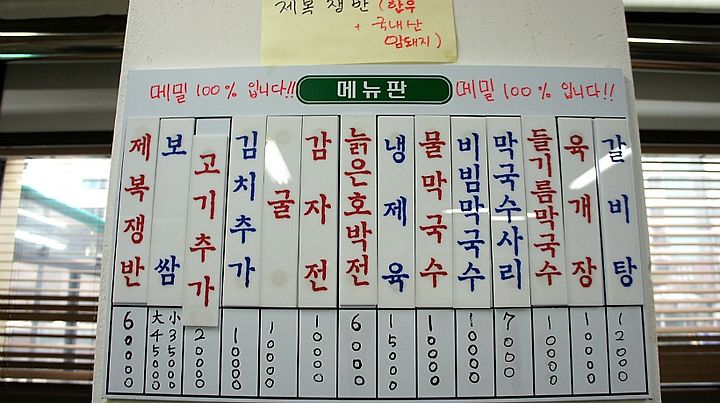 제복 쟁반 (한우
+ 국내산
암돼지)
메밀 100% 입니다!! 메뉴판 메밀 100% 입니다!!
제복쟁반 60000
보쌈 大45000 小35000
고기추가 20000
김치추가 10000
굴 10000
감자전 10000
늙은호박전 6000
냉제육 15000
물막국수 10000
비빔막국수 10000
막국수사리 7000
들기름막국수 10000
육개장 10000
갈비탕 12000